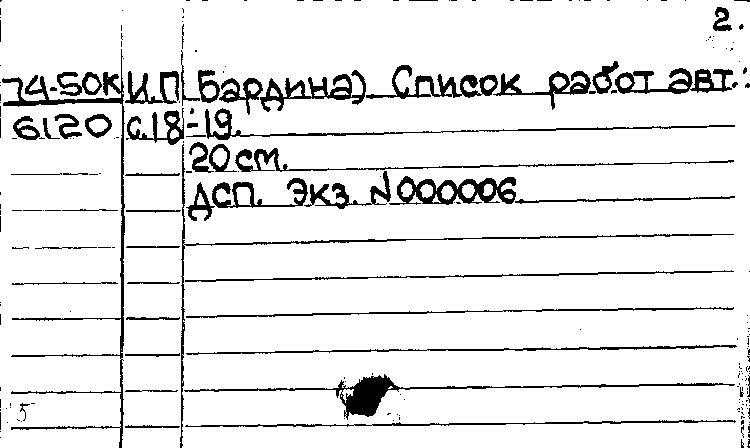 2.
74-50К И.П. Бардина). Список работ авт.:
6120 с.18-19.
20 см.
ДСП. Экз. N000006.
5